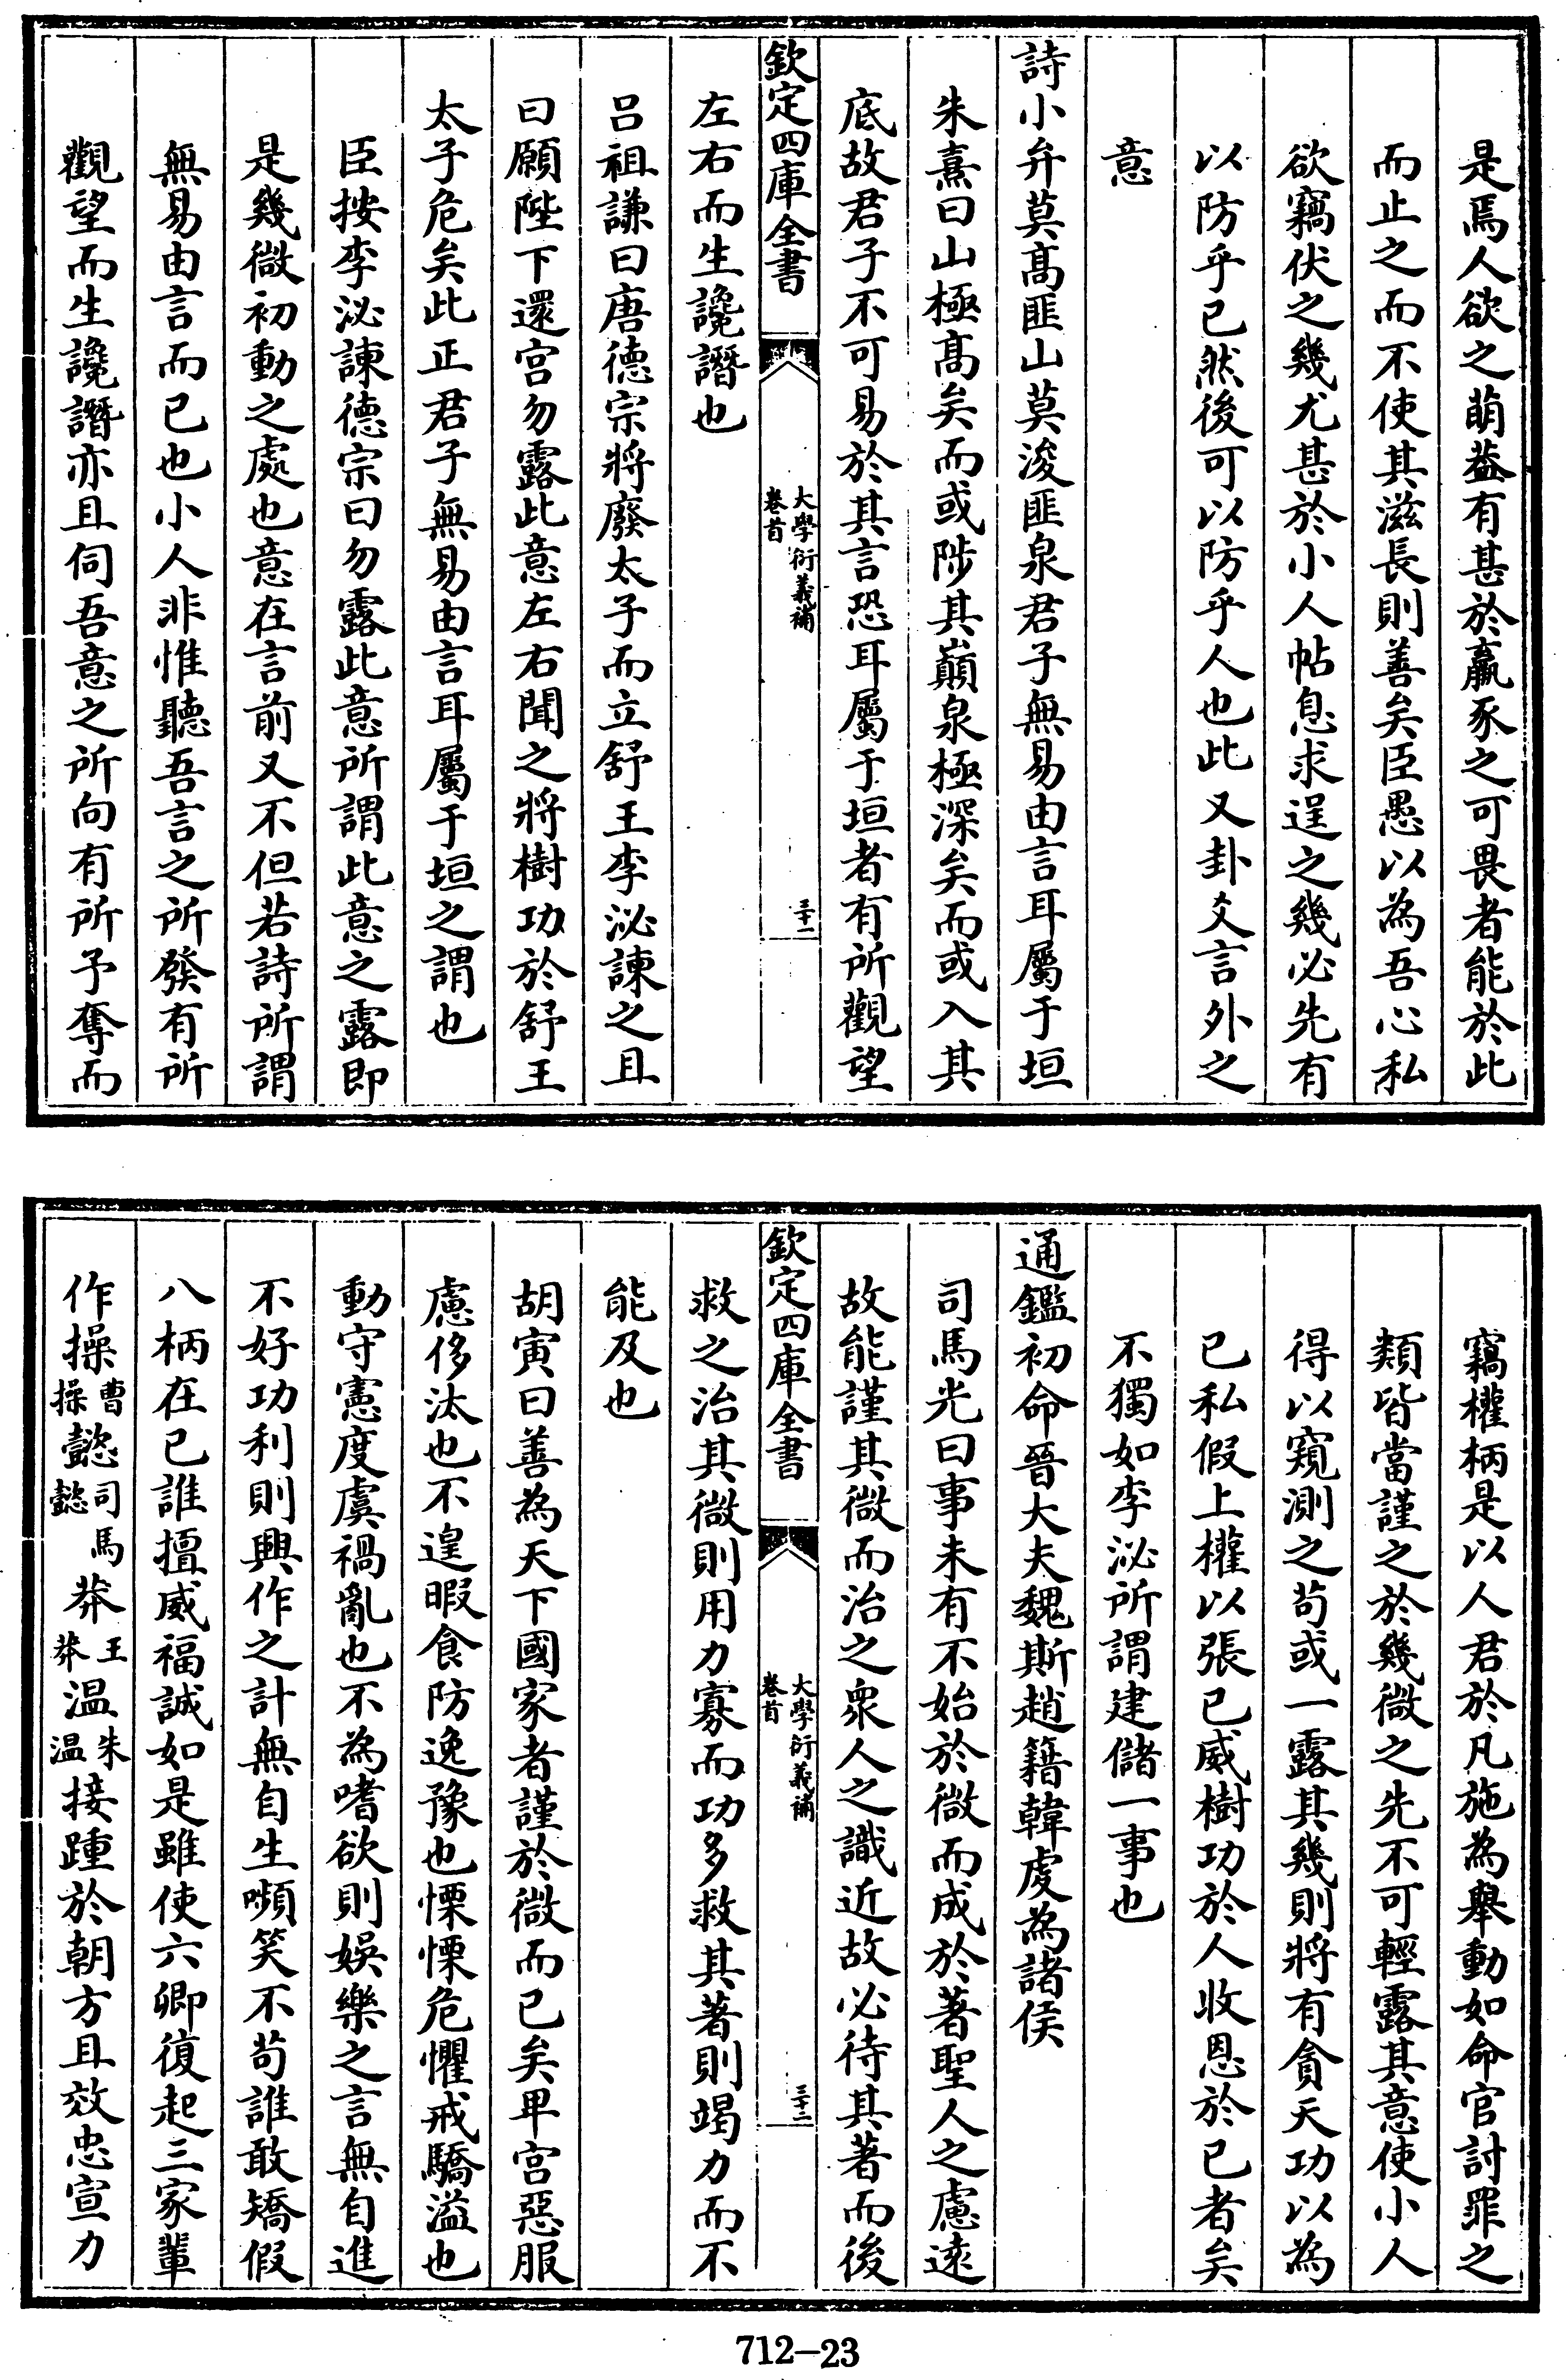 是焉人欲之萌葢有甚於羸豕之可畏者能於此
而止之而不使其滋長則善矣臣愚以為吾心私
欲竊伏之幾尤甚於小人帖息求逞之幾必先有
以防乎已然後可以防乎人也此又卦爻言外之
意
詩小弁莫髙匪山莫浚匪泉君子無易由言耳屬于垣
朱熹曰山極髙矣而或陟其巔泉極深矣而或入其
底故君子不可易於其言恐耳屬于垣者有所觀望
欽定四庫全書
大學衍義補
卷首
三十一
左右而生讒譖也
吕祖謙曰唐德宗將廢太子而立舒王李泌諫之且
曰願陛下還宫勿露此意左右聞之將樹功於舒王
太子危矣此正君子無易由言耳屬于垣之謂也
臣按李泌諫德宗曰勿露此意所謂此意之露即
是幾微初動之處也意在言前又不但若詩所謂
無易由言而已也小人非惟聽吾言之所發有所
觀望而生讒譖亦且伺吾意之所向有所予奪而
竊權柄是以人君於凡施為舉動如命官討罪之
類皆當謹之於幾微之先不可輕露其意使小人
得以窺測之茍或一露其幾則將有貪天功以為
已私假上權以張已威樹功於人收恩於已者矣
不獨如李泌所謂建儲一事也
通鑑初命晉大夫魏斯趙籍韓虔為諸侯
司馬光曰事未有不始於微而成於著聖人之慮逺
故能謹其微而治之衆人之識近故必待其著而後
欽定四庫全書
大學衍義補
卷首
三十二
救之治其微則用力寡而功多救其著則竭力而不
能及也
胡寅曰善為天下國家者謹於微而已矣卑宫惡服
慮侈汰也不遑暇食防逸豫也慄慄危懼戒驕溢也
動守憲度虞禍亂也不為嗜欲則娛樂之言無自進
不好功利則興作之計無自生嚬笑不茍誰敢矯假
八柄在已誰擅威福誠如是雖使六卿復起三家輩
作操曹操懿司馬懿莽王莽温朱温接踵於朝方且效忠宣力
712-23